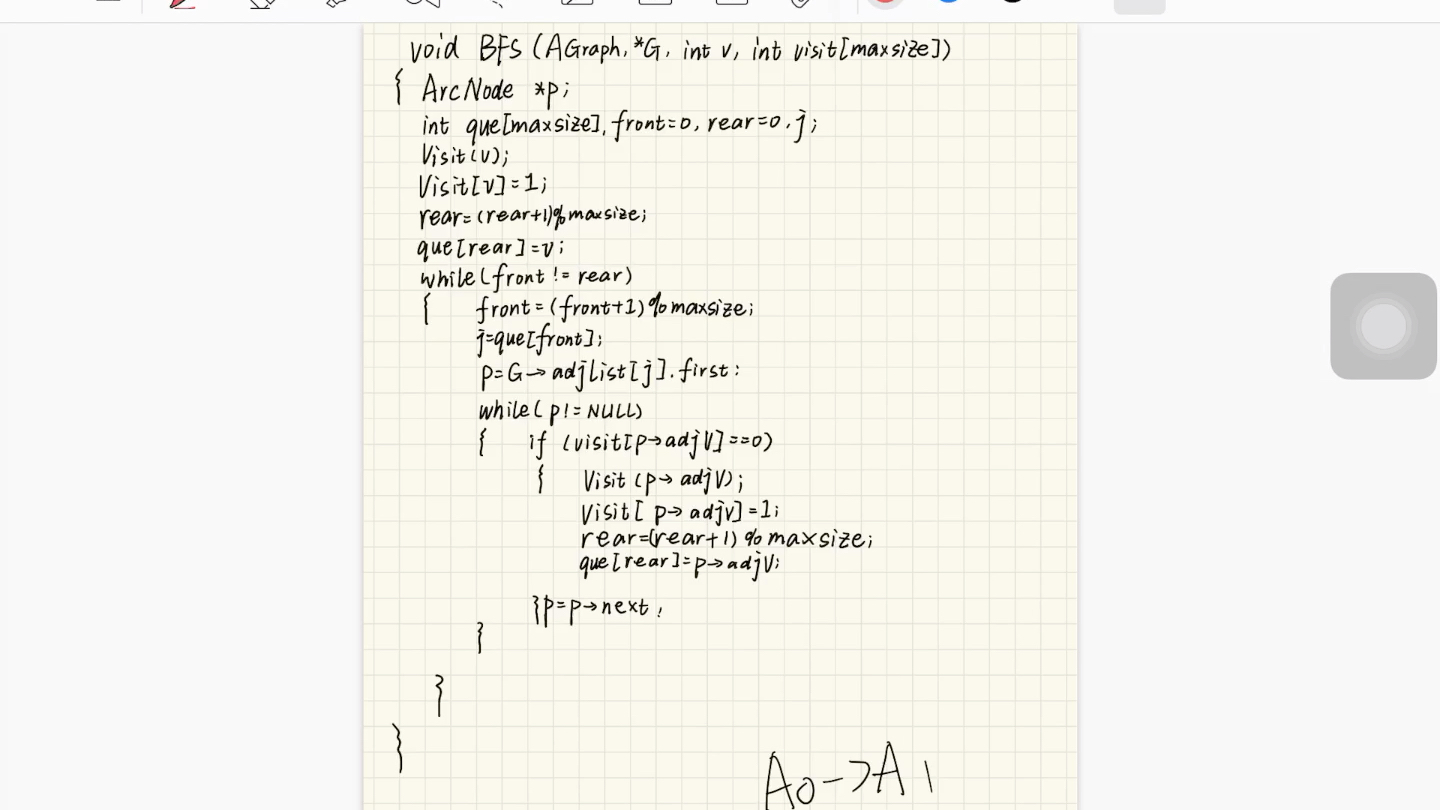 void BFS (AGraph, *G, int v, int visit[maxsize])
{ ArcNode *p;
int que[maxsize], front=0, rear=0, j;
Visit(v);
Visit[v]=1;
rear=(rear+1)%maxsize;
que[rear]=v;
while(front != rear)
{ front=(front+1)%maxsize;
j=que[front];
p=G→adjlist[j].first:
while( p!=NULL)
{ if (visit[p→adjV]==0)
{ Visit (p→adjV);
Visit[ p→adjv]=1;
rear=(rear+1) % maxsize;
que[rear]=p→adjV;
}p=p→next;
}
}
}
A0->A1